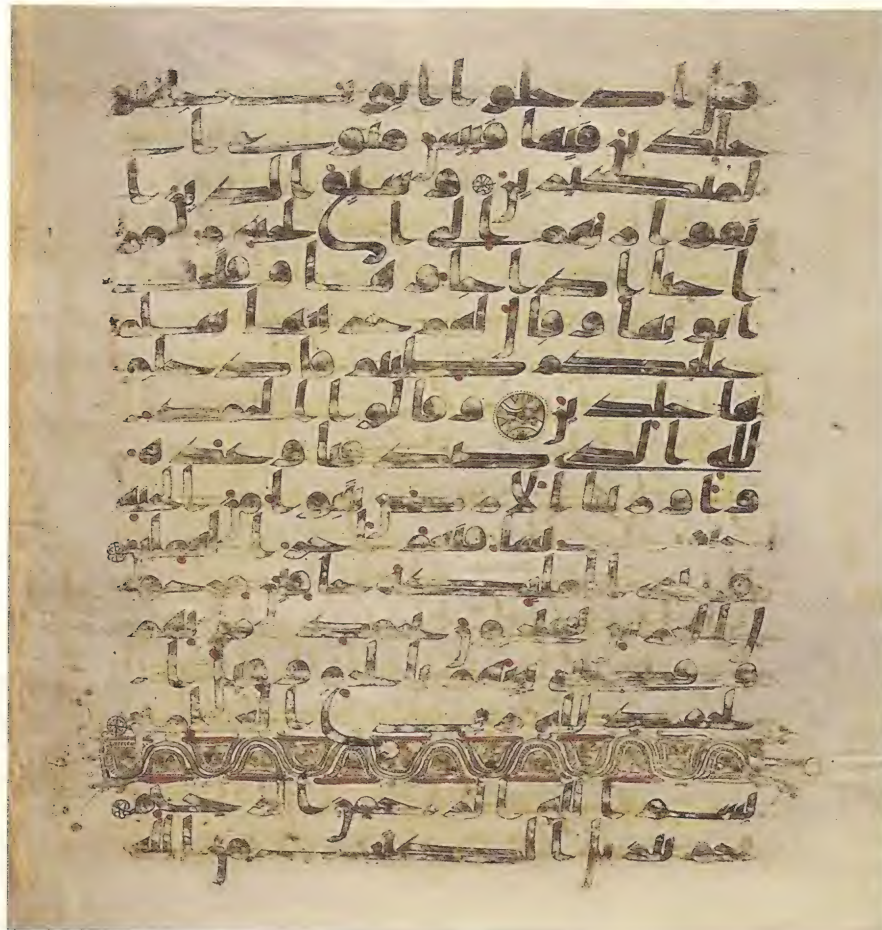 قيل ادخلوا ابوب جهنم
خلدين فيها فبئس مثوى ا
لمتكبرين وسيق الذين ا
تقوا ربهم الى الجنة زمر
ا حتى اذا جاوها وفتحت
ابوبها وقال لهم خزنتها سلم
عليكم طبتم فادخلو
ها خلدين وقالوا الحمد
لله الذي صدقنا وعده
واورثنا الارض نتبوا من الجنة
حيث نشا فنعم اجر العملين
وترى الملئكة حافين من حول
العرش يسبحون بحمد ربهم
وقضي بينهم بالحق وقيل ا
لحمد لله رب العلمين
بسم الله الرحمن الرحيم
حم تنزيل الكتب من الله